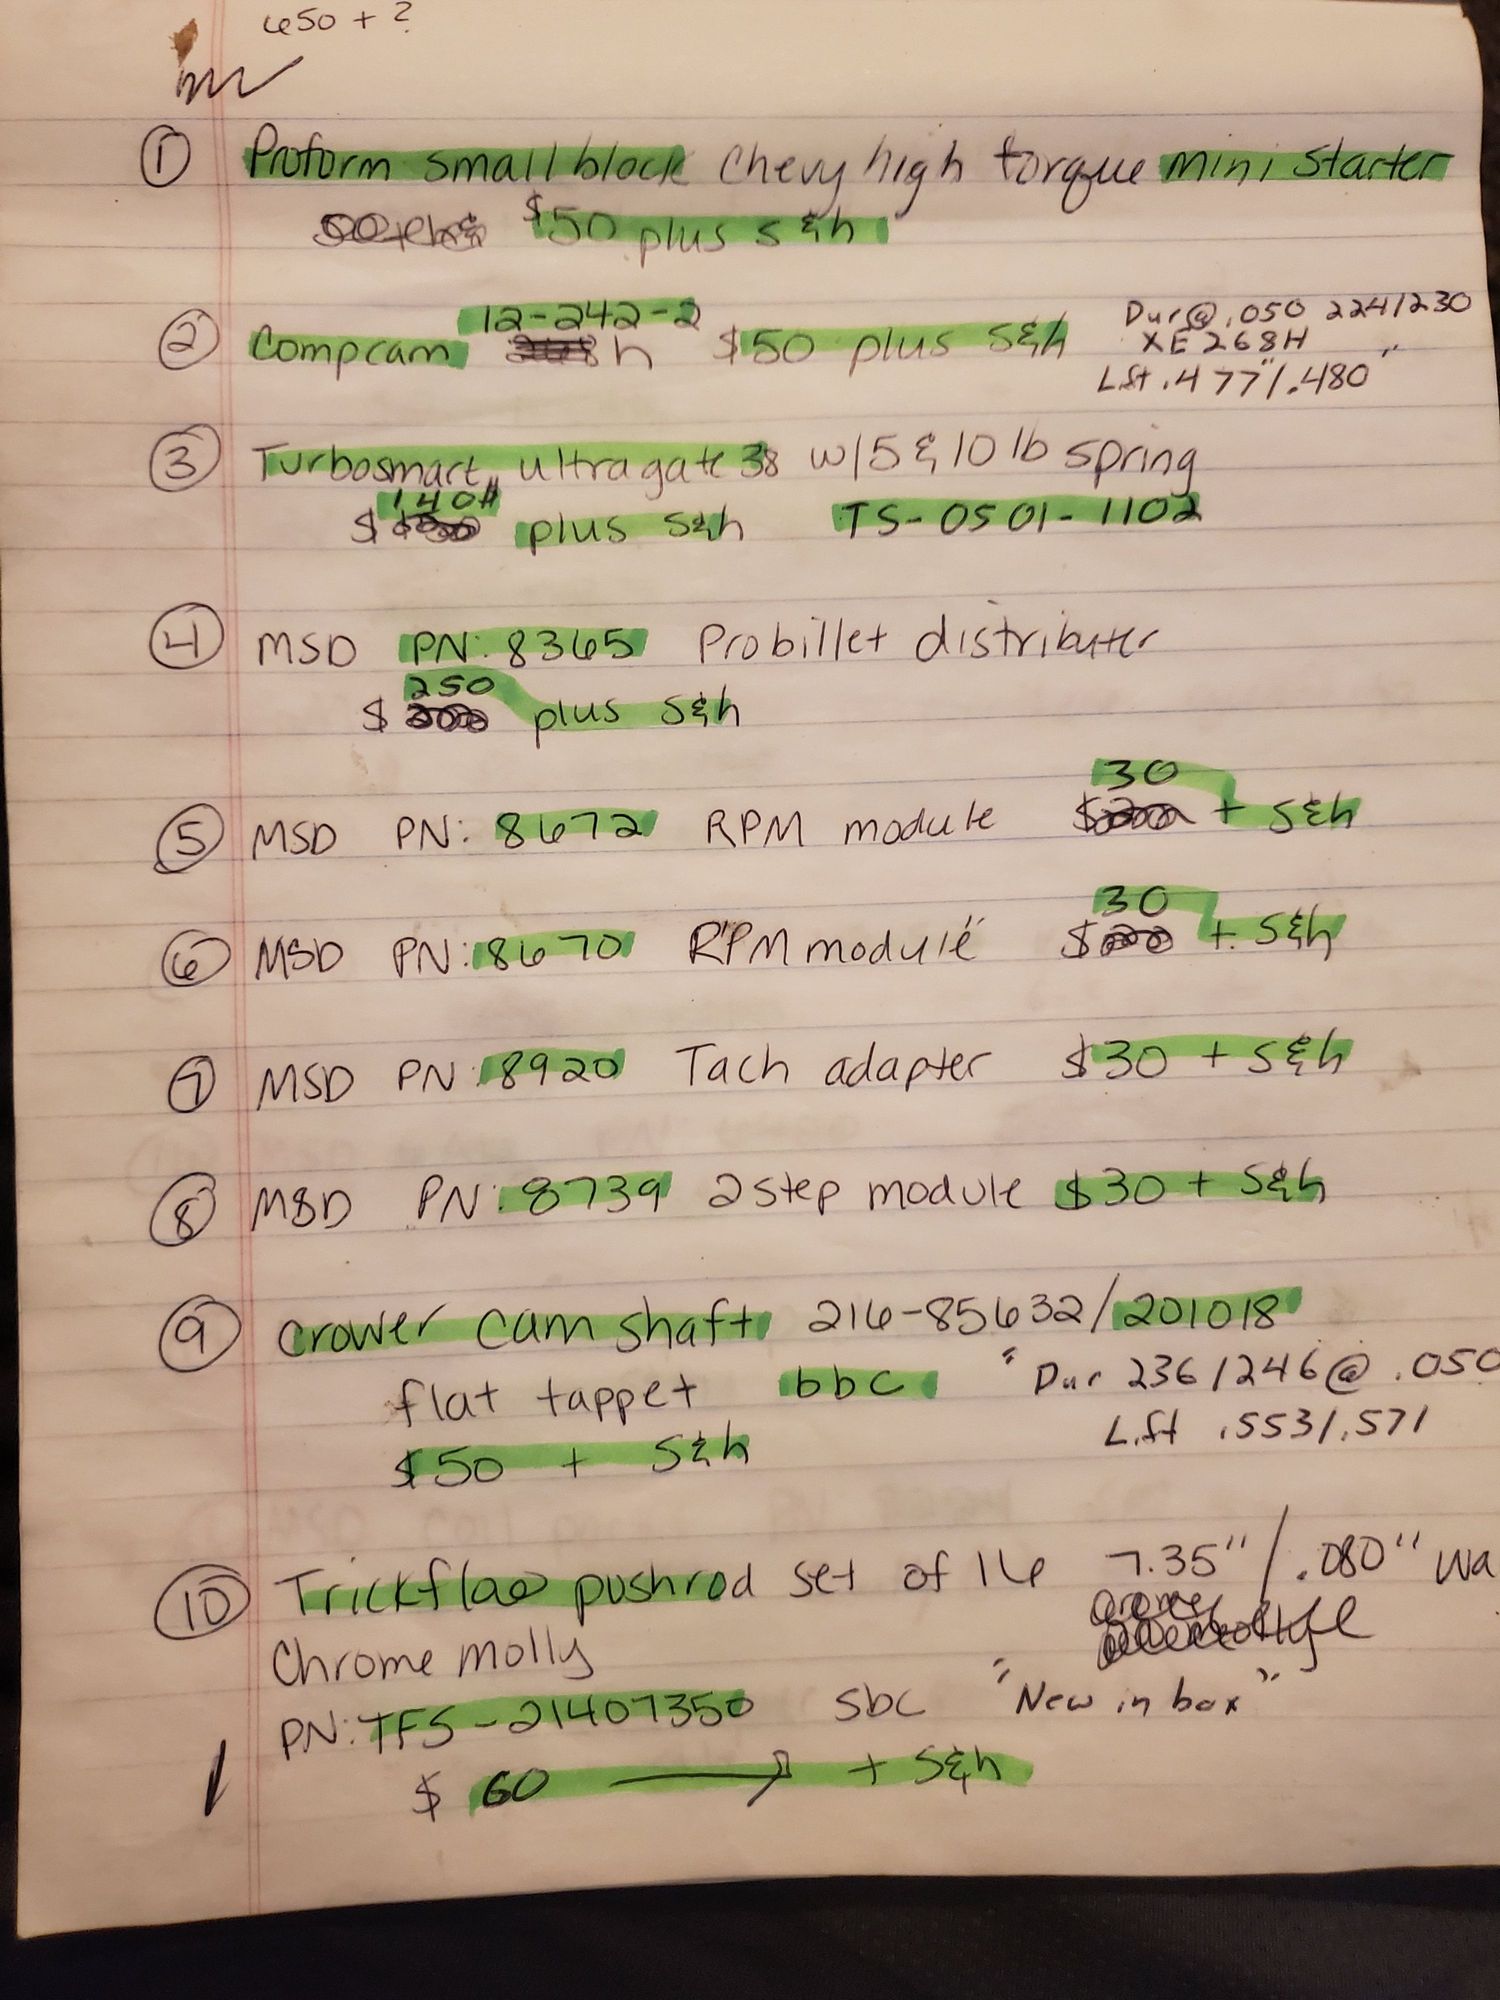 650 + ?
① Proform small block Chevy high torque mini starter
$50 plus s&h
② Compcam 12-242-2 h $50 plus s&h
Dur@.050 224/230
XE268H
Lift .477"/.480"
③ Turbosmart ultragate 38 w/5 & 10 lb spring
$ 140 plus s&h TS-0501-1102
④ MSD PN: 8365 Probillet distributer
$ 250 plus s&h
⑤ MSD PN: 8672 RPM module 30 + s&h
⑥ MSD PN: 8670 RPM module" $ 30 + s&h
⑦ MSD PN: 8920 Tach adapter $30 + s&h
⑧ MSD PN: 8739 2step module $30 + s&h
⑨ Crower camshaft 216-85632/201018
flat tappet bbc "Dur 236/246@.050
$50 + s&h Lift .553/.571
⑩ Trickflow pushrod set of 16 7.35"/.080" wa
Chrome molly
PN: TFS-21407350 sbc "New in box"
$ 60 → + s&h